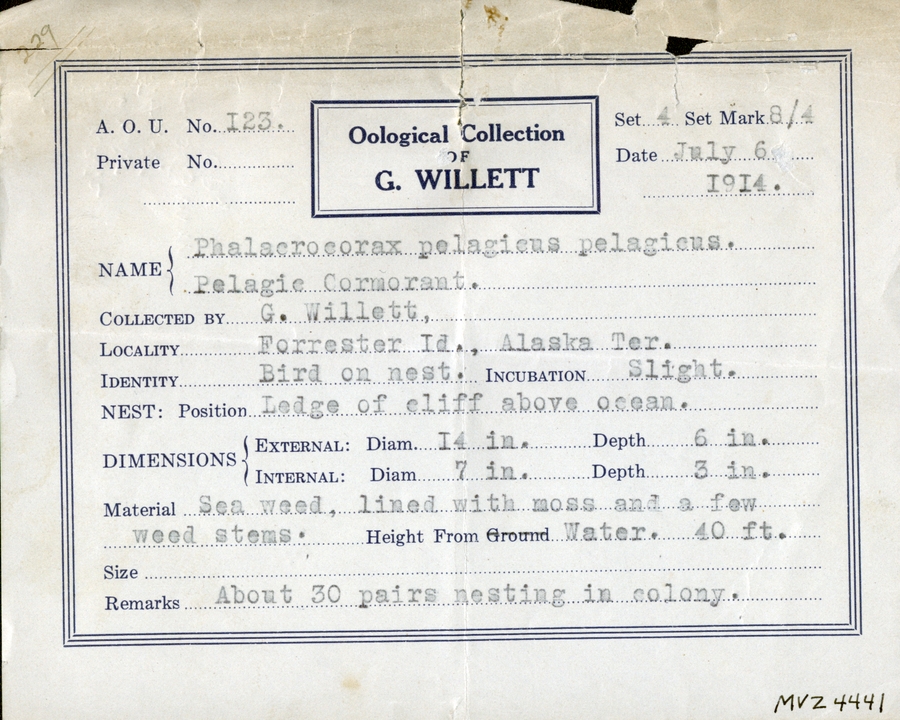 229
A. O. U. No. 123.
Private No.
Oological Collection
OF
G. WILLETT
Set 4 Set Mark 8/4
Date July 6
1914.
NAME { Phalacrocorax pelagicus pelagicus.
Pelagic Cormorant.
COLLECTED BY G. Willett,
LOCALITY Forrester Id., Alaska Ter.
IDENTITY Bird on nest. INCUBATION Slight.
NEST: Position Ledge of cliff above ocean.
DIMENSIONS { EXTERNAL: Diam. 14 in. Depth 6 in.
INTERNAL: Diam 7 in. Depth 3 in.
Material Sea weed, lined with moss and a few
weed stems. Height From Ground Water. 40 ft.
Size
Remarks About 30 pairs nesting in colony.
MVZ 4441